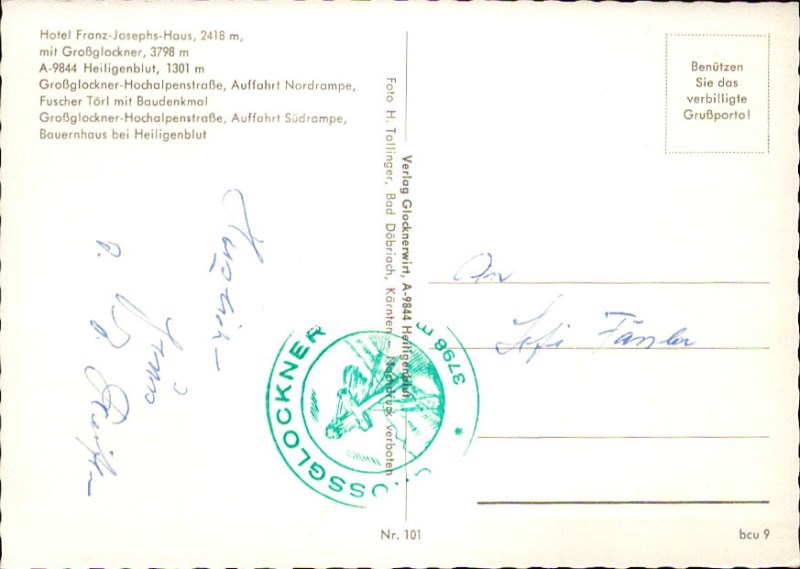 Hotel Franz-Josephs-Haus, 2418 m,
mit Großglockner, 3798 m
A-9844 Heiligenblut, 1301 m
Großglockner-Hochalpenstraße, Auffahrt Nordrampe,
Fuscher Törl mit Baudenkmal
Großglockner-Hochalpenstraße, Auffahrt Südrampe,
Bauernhaus bei Heiligenblut
Benützen
Sie das
verbilligte
Grußporto!
Verlag Glocknerwirt, A-9844 Heiligenblut
Foto H. Tollinger, Bad Döbriach, Kärnten – Nachdruck verboten
An
OSSGLOCKNER 3798 m *
Nr. 101
bcu 9